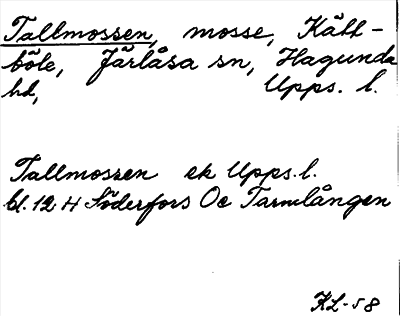 Tallmossen, mosse, Käll-
böle, Järlåsa sn, Hagunda
hd, Upps. l.
Tallmossen ek Upps. l.
bl. 12 H Söderfors Oc Tarmlången
KL-58